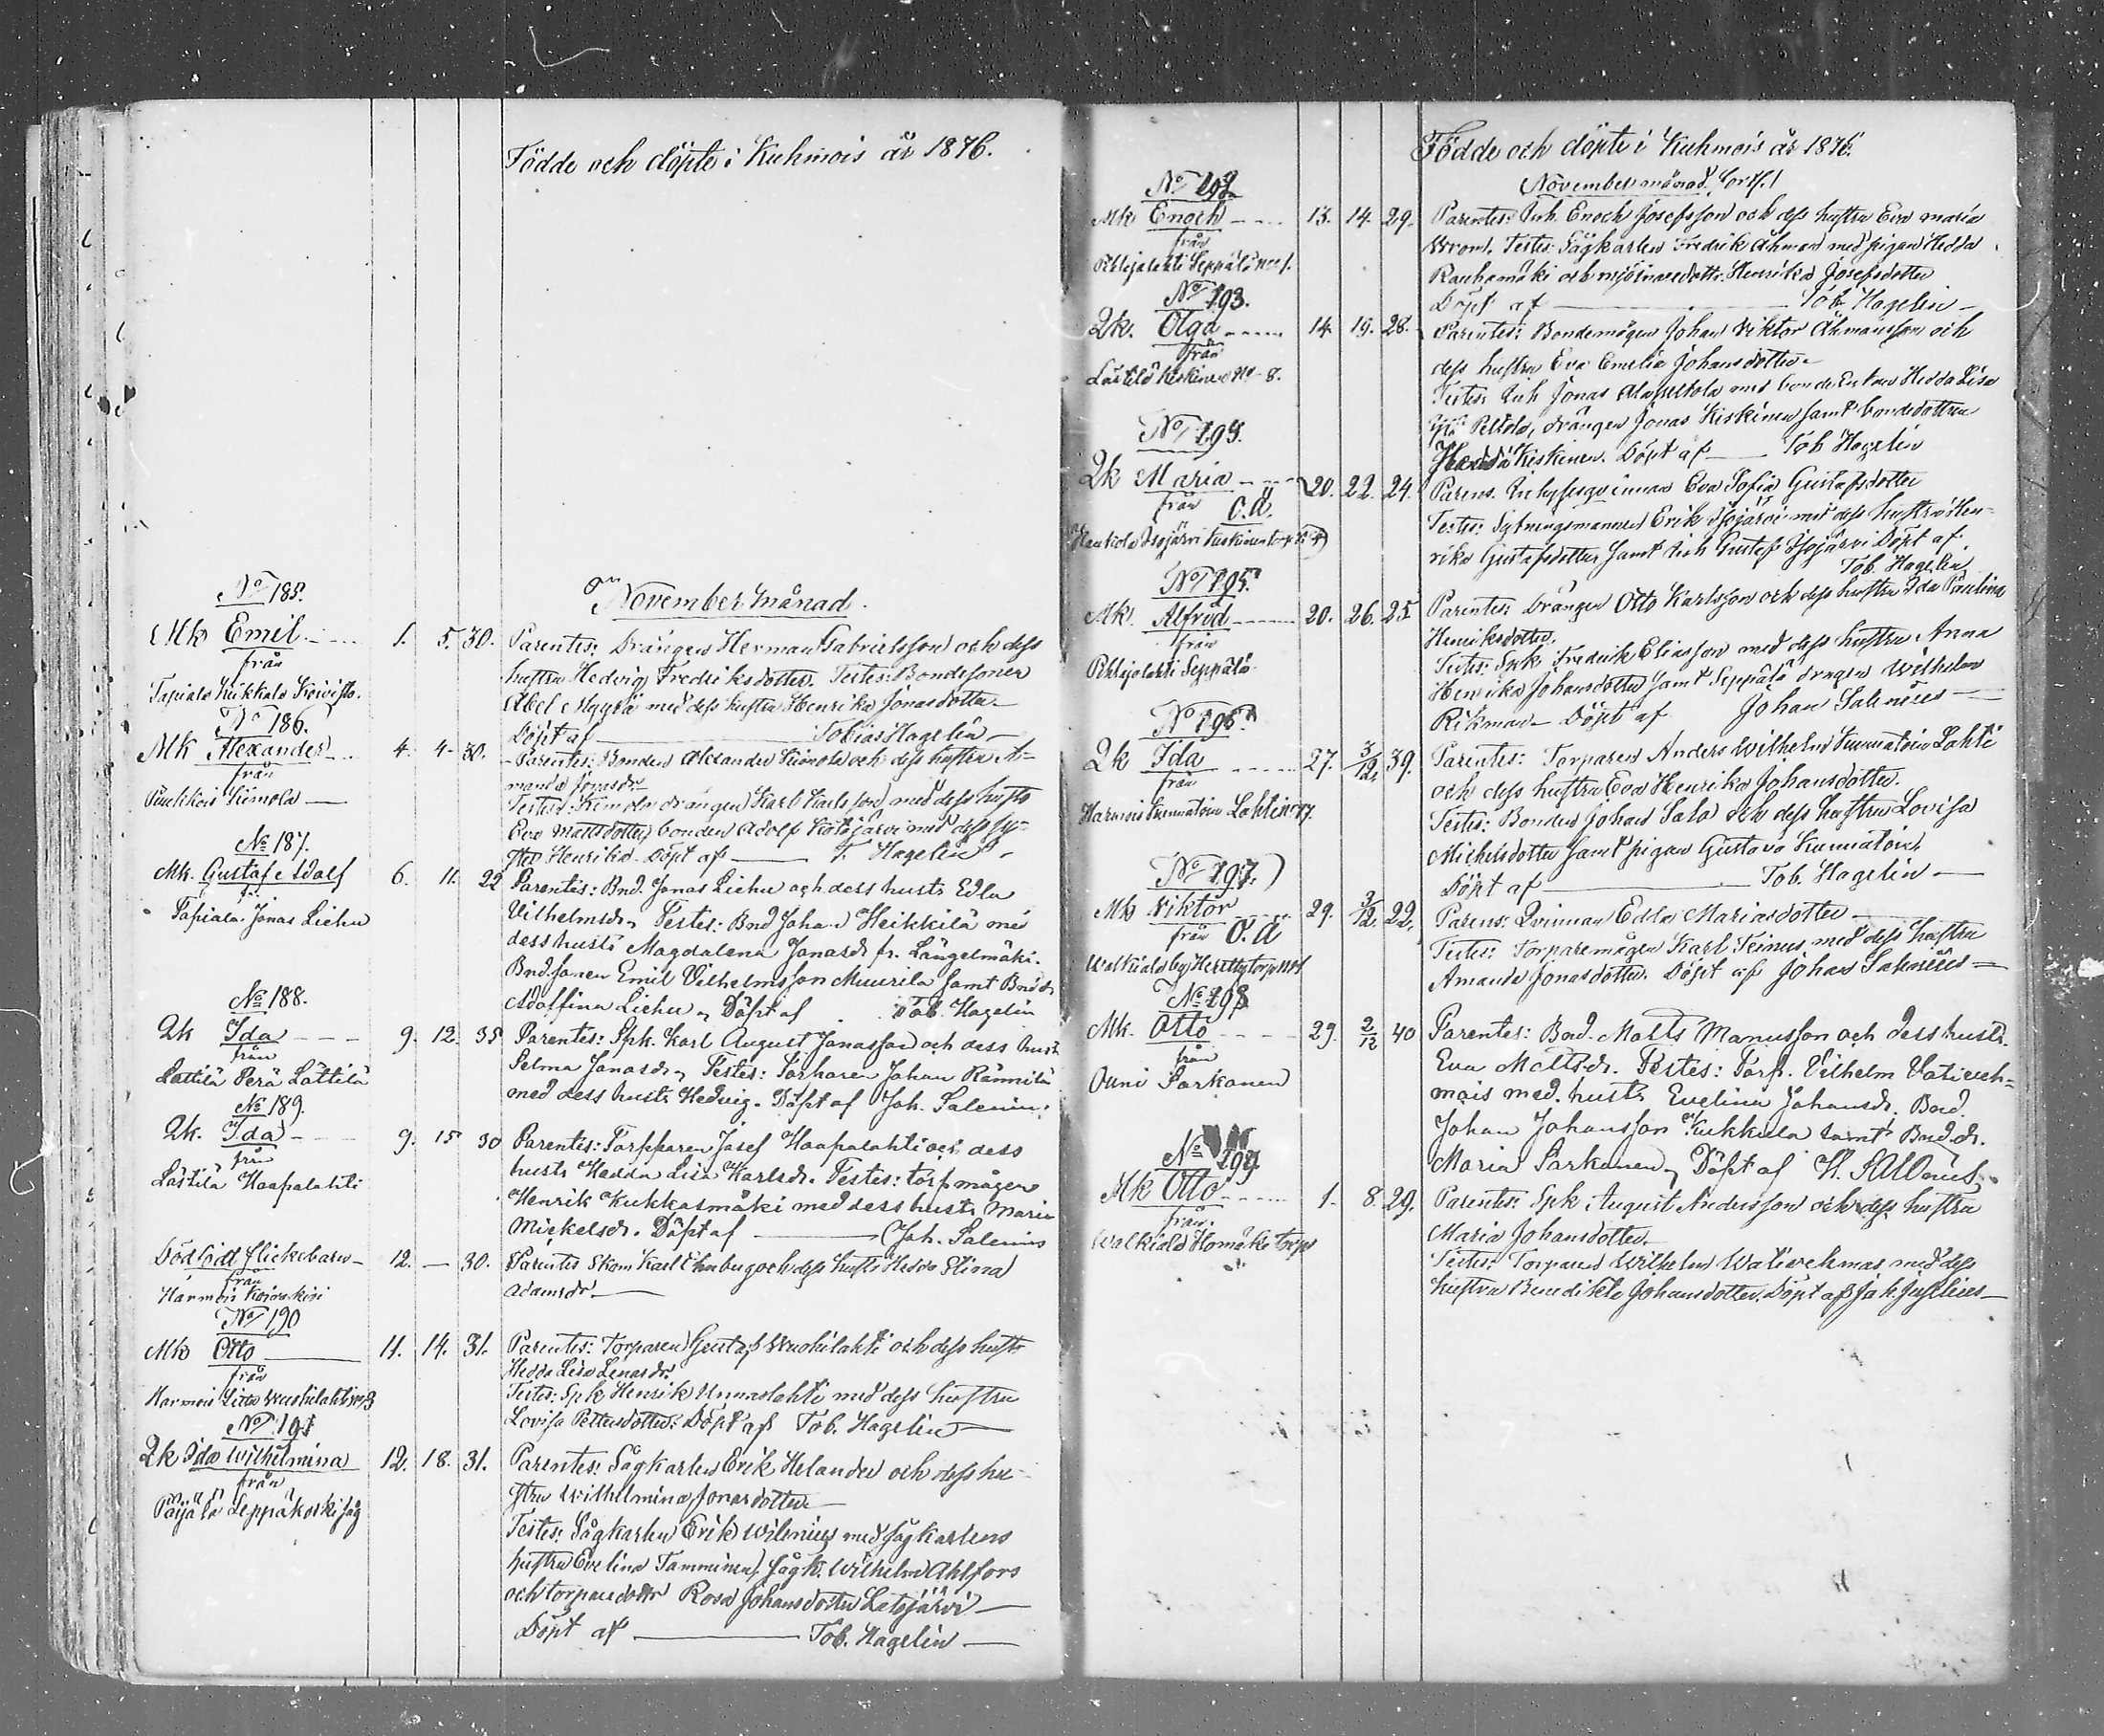 Födde och döpte i Kuhmois år 1876.
November månad.
No 185.
Mk Emil 1. 5. 30.
från
Tapiala Kukkola Koivisto.
Parentes: Drängen Herman Gabrielsson och dess
hustru Hedvig Fredriksdotter. Testes: Bondesonen
Abel Myyrä med dess hustru Henrika Jonasdotter
Döpt af Tobias Hagelin
No 186.
Mk Alexander 4. 4. 30.
från
Puukkois Kimola
Parentes: Bonden Alexander Kimola och dess hustru A-
manda Jonasdr.
Testes: Kimola drängen Karl Karlsson med dess hustr.
Eva Mattsdotter, bonden Adolf Isojärvi med dess sy-
ster Henrika. Döpt af T. Hagelin
No 187.
Mk. Gustaf Adolf 6. 11. 22
fr.
Tapiala Jonas Liehu
Parentes: Bnd. Jonas Liehu och dess hustr. Edla
Vilhelmsdr. Testes: Bnd Johan Heikkilä me
dess hustr. Magdalena Jonasdr fr. Längelmäki.
Bnd.sonen Emil Vilhelmsson Muurila samt Bnd.dr
Adolfina Liehu, Döpt af Tob. Hagelin
No 188.
Qk Ida 9. 12. 35
från
Lästilä Perä Lästilä
Parentes: Spk. Karl August Jonasson och dess hustr.
Selma Jonasdr, Testes: Torparen Johan Rännilä
med dess hustr. Hedvig. Döpt af Joh. Salenius.
No 189.
Qk. Ida 9. 15 30
från
Lästilä Haapalahti
Parentes: Torpparen Josef Haapalahti och dess
hustr. Hedda Lisa Karlsdr. Testes: torpmågen
Henrik Kukkasmäki med dess hustr. Maria
Mickelsdr. Döpt af Joh. Salenius
Dödfödt flickebarn 12. — 30.
från
Harmois Koivukoski
Parentes Skom. Karl Ehnberg och dess hustr. Hedda Stina
Adamsdr.
No 190
Mk Otto 11. 14. 31.
från
Harmois Vuohilahti No 3
Parentes: Torparen Gustaf Wuohilahti och dess hustr.
Hedda Lisa Lenasdr.
Testes: Spk Henrik Unnaslahti med dess hustru
Lovisa Pettersdotter. Döpt af Tob. Hagelin
No 191
Qk Ida Wilhelmina 12. 18. 31.
från
Päijälä Leppäkoski såg
Parentes: Sågkarlen Erik Helander och dess hu-
stru Wilhelmina Jonasdotter
Testes: Sågkarlen Erik Wilenius med sågkarlens
hustru Evelina Tamminen, sågk. Wilhelm Ahlfors
och torparedottr Rosa Johansdotter Latojärvi
Döpt af Tob. Hagelin
Födde och döpte i Kuhmois år 1876.
November månad. forts.
No 192
Mk Enoch 13. 14. 29.
från
Pihlajalahti Seppälä No 1.
Parentes: Inh. Enoch Josefsson och dess hustru Eva Maria
Testes: Sågkarlen Fredrik Åhman med pigan Hedda
Rauhamäki och mjölnaredottr. Henrika Josefsdotter
Döpt af Tob. Hagelin
No 193.
Qk. Olga 14. 19. 28.
från
Lästilä Keskinen No 8.
Parentes: Bondemågen Johan Viktor Åhmansson och
dess hustru Eva Emelia Johansdotter
Testes: Inh Jonas med bondeenkan Hedda Lisa
Peltola, drängen Jonas Kiskinen samt bondedottren
Hedda Kiskinen. Döpt af Tob Hagelin
No 194.
Qk Maria 20. 22. 24.
från O.Ä.
Haukiala Isojärvi
Parens. Inhyseqvinnan Eva Sofia Gustafsdotter
Testes: Sytningsmannen Erik Isojärvi med dess hustru Hen-
rika Gustafsdotter samt Inh Gustaf Isojärvi Döpt af
Tob. Hagelin
No 195.
Mk. Alfred 20. 26. 25
från
Pihlajalahti Seppälä
Parentes: Drängen Otto Karlsson och dess hustru Ida Paulina
Henriksdotter.
Testes: Spk Fredrik Eliasson med dess hustru Anna
Henrika Johansdotter samt Seppälä drängen Wilhelm
Rikman Döpt af Johan Salenius
No 196
Qk Ida 27. 3/12. 39.
från
Harmois Lahti No 17.
Parentes: Torparen Anders Wilhelm Lahti
och dess hustru Eva Henrika Johansdotter.
Testes: Bonden Johan Salo och dess hustru Lovisa
Mickelsdotter samt pigan Gustava
Döpt af Tob. Hagelin
No 197.
Mk Viktor 29. 3/12. 22.
från O.Ä
Walkiala by torp
Parens: Qvinnan Edla Mariasdotter
Testes: Torparemågen Karl Keinus med dess hustru
Amanda Jonasdotter. Döpt af Johan Salenius
No 198
Mk. Otto 29. 2/12 40
från
Ouni Sarkanen
Parentes: Bnd. Matts Manusson och dess hustr.
Eva Mattsdr. Testes: Torp. Vilhelm Vativeh-
mais med hustr. Evelina Johansdr. Bnd.
Johan Johansson Kukkula samt Bnd.dr.
Maria Sarkanen, Döpt af
No 199
Mk Otto 1. 8. 29.
från
Walkiala Homäki torp
Parentes: Spk August Andersson och dess hustru
Maria Johansdotter
Testes: Torparen Wilhelm Wativehmas med dess
hustru Benedikta Johansdotter. Döpt af Joh. Juselius